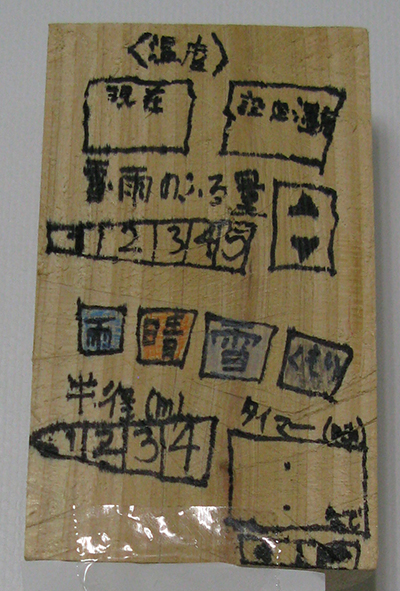 〈温度〉
現在 設定温度
雪・雨のふる量
1 2 3 4 5 ▲ ▼
雨 晴 雪 くもり
半径(m) タイマー
1 2 3 4
: : まで